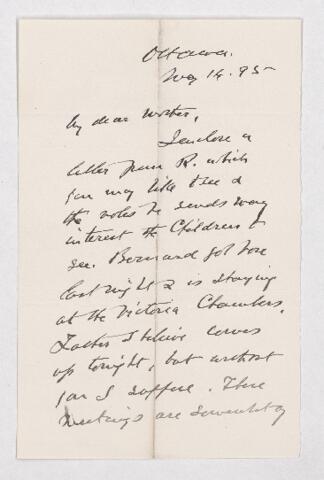 Ottawa.
May 14. 95
My dear Mother,
I enclose a
letter from R. which
you may like to see &
the notes he sends may
interest the Children to
see. Bernard got here
last night & is staying
at the Victoria Chambers.
Father I believe comes
up tonight, but without
you I suppose. These
meetings are somewhat of